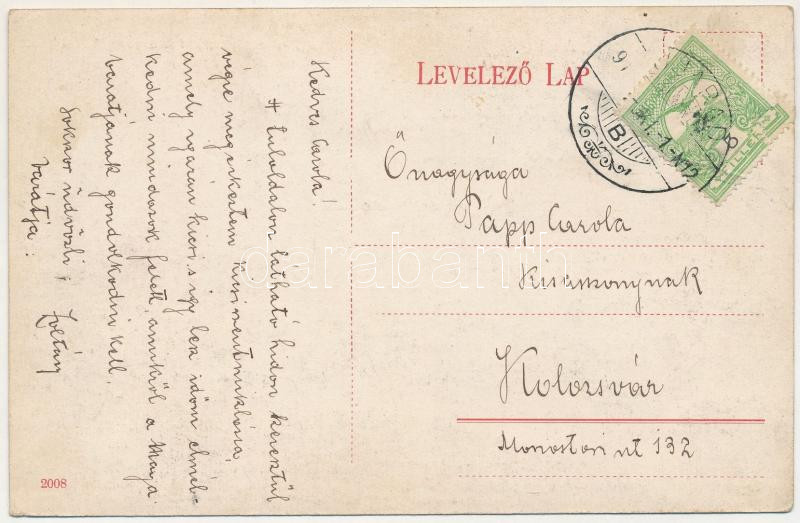 Kedves Carola!
A tuloldalon látható hidon keresztül
végre megérkeztem Kicsi szentmiklósra,
amely igazán kicsi s igy lesz időm elmél-
kedni mindazok felett, amikről a Maga
barátjának gondolkodni kell.
Sokszor üdvözli
barátja:
Zoltán
2008
LEVELEZŐ LAP
Őnagysága
Papp Carola
Kisasszonynak
Kolozsvár
Monostori ut 132
B
darabanth